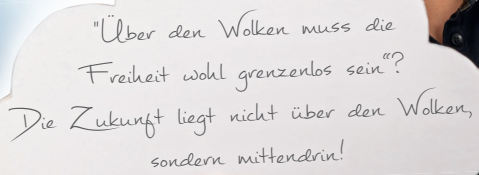 "Über den Wolken muss die
Freiheit wohl grenzenlos sein"?
Die Zukunft liegt nicht über den Wolken,
sondern mittendrin!